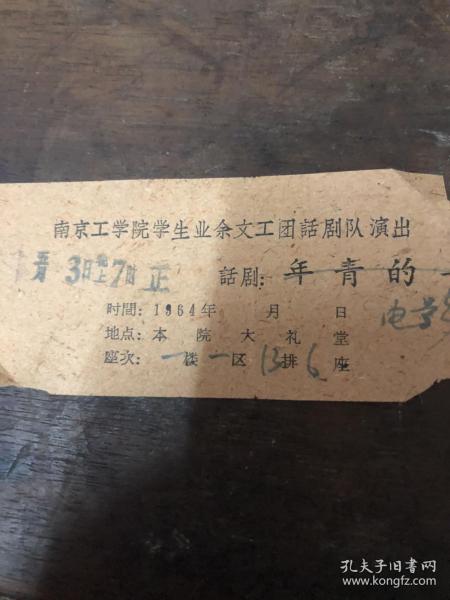 南京工学院学生业余文工团話剧队演出
五月3日晚上7時正 話剧：年青的一
时間：1964年 月 日
地点：本院大礼堂
座次：一楼一区13排6座
孔夫子旧书网
www.kongfz.com